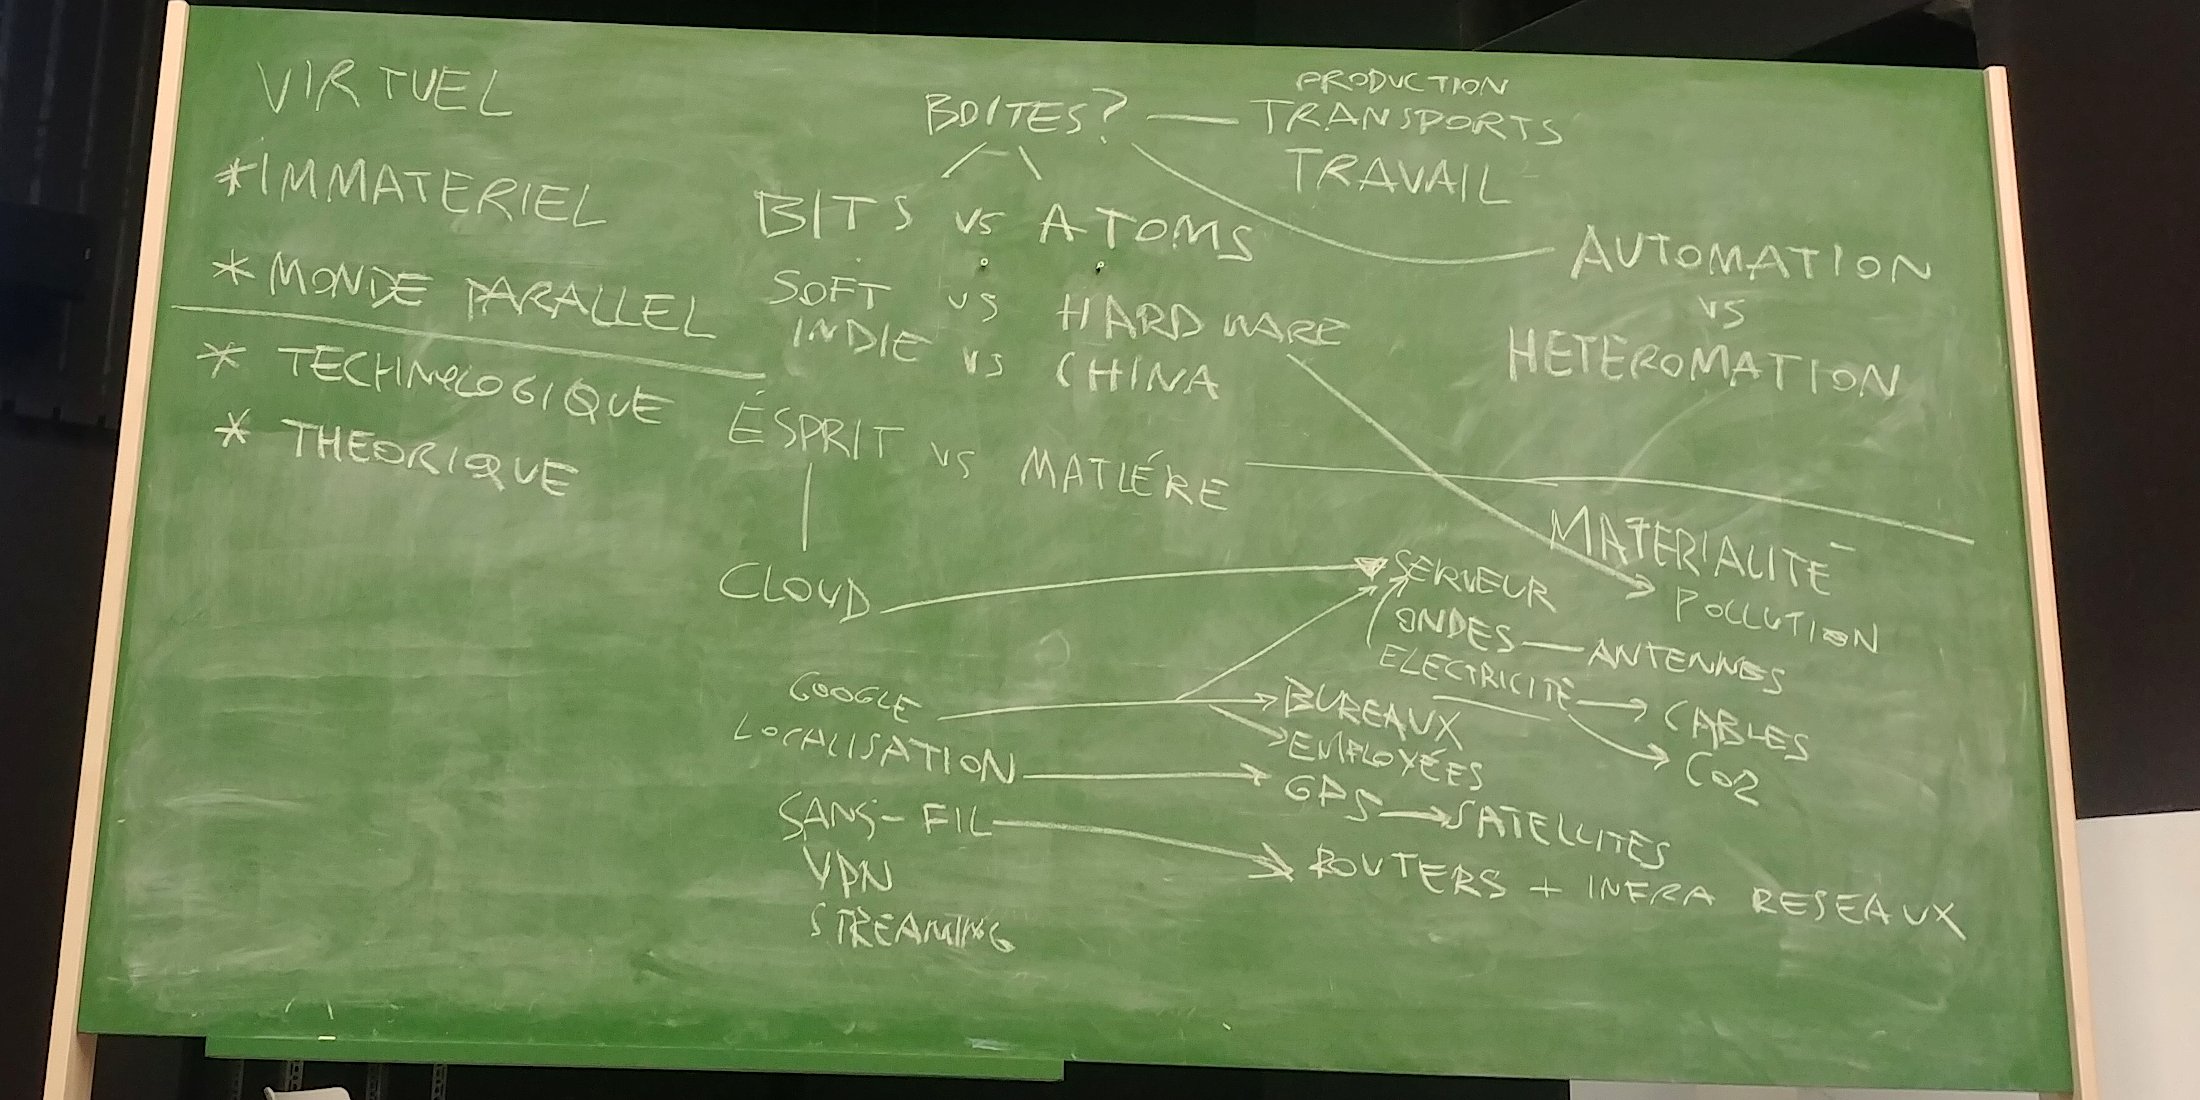 VIRTUEL
*IMMATERIEL
* MONDE PARALLEL
* TECHNOLOGIQUE
* THEORIQUE
BOITES?
PRODUCTION
TRANSPORTS
TRAVAIL
BITS vs ATOMS
SOFT vs HARDWARE
INDIE vs CHINA
ÉSPRIT vs MATIÉRE
AUTOMATION
vs
HETEROMATION
MATERIALITÉ
POLLUTION
CLOUD
SERVEUR
ONDES — ANTENNES
ELECTRICITÉ → CABLES
CO2
GOOGLE
BUREAUX
EMPLOYÉES
LOCALISATION
GPS → SATELLITES
SANS-FIL
ROUTERS + INFRA RESEAUX
VPN
STREAMING